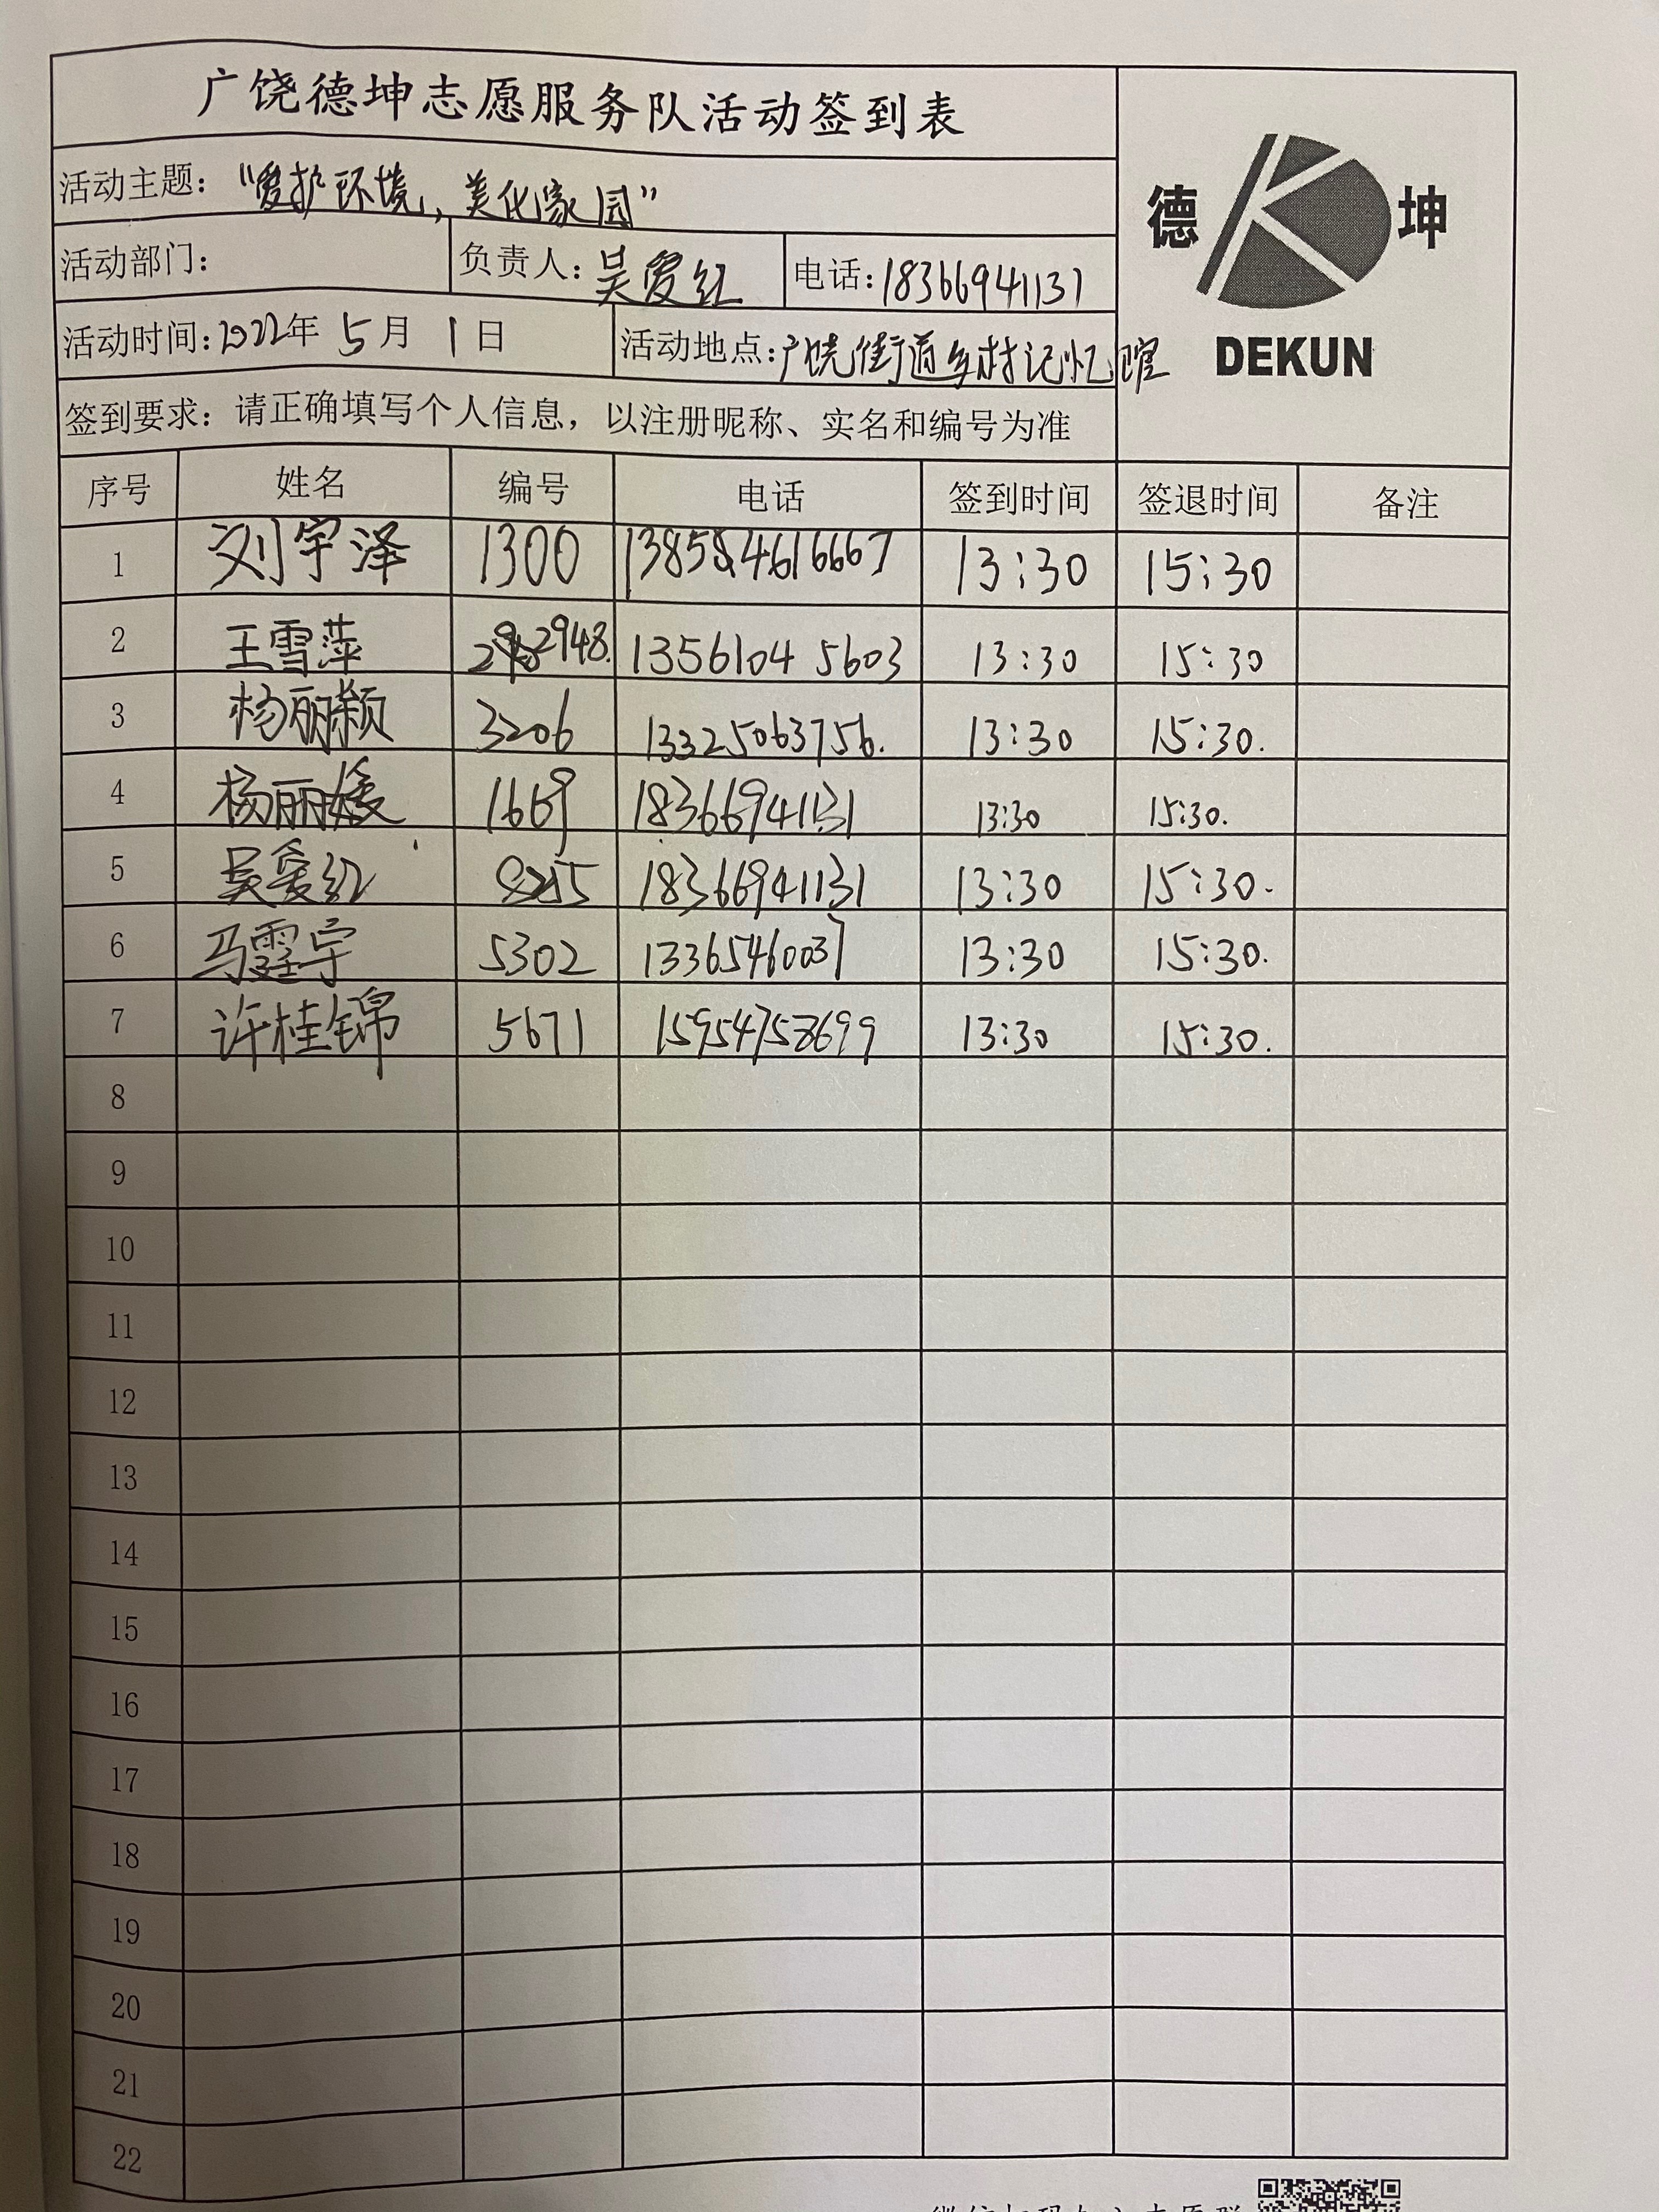 广饶德坤志愿服务队活动签到表
活动主题："爱护环境，美化家园"
德 坤
DEKUN
活动部门： 负责人：吴爱红 电话：18366941131
活动时间：2022年 5月 1日 活动地点：广饶街道乡村记忆馆
签到要求：请正确填写个人信息，以注册昵称、实名和编号为准
序号 姓名 编号 电话 签到时间 签退时间 备注
1 刘宇泽 1300 13:30 15:30
2 王雪萍 2948. 13561045603 13:30 15:30
3 杨丽颖 3206 13325063756. 13:30 15:30.
4 杨丽媛 1669 18366941131 13:30 15:30.
5 吴爱红 18366941131 13:30 15:30.
6 马霆宇 5302 13365460037 13:30 15:30.
7 许桂锦 5671 15954758699 13:30 15:30.
8
9
10
11
12
13
14
15
16
17
18
19
20
21
22